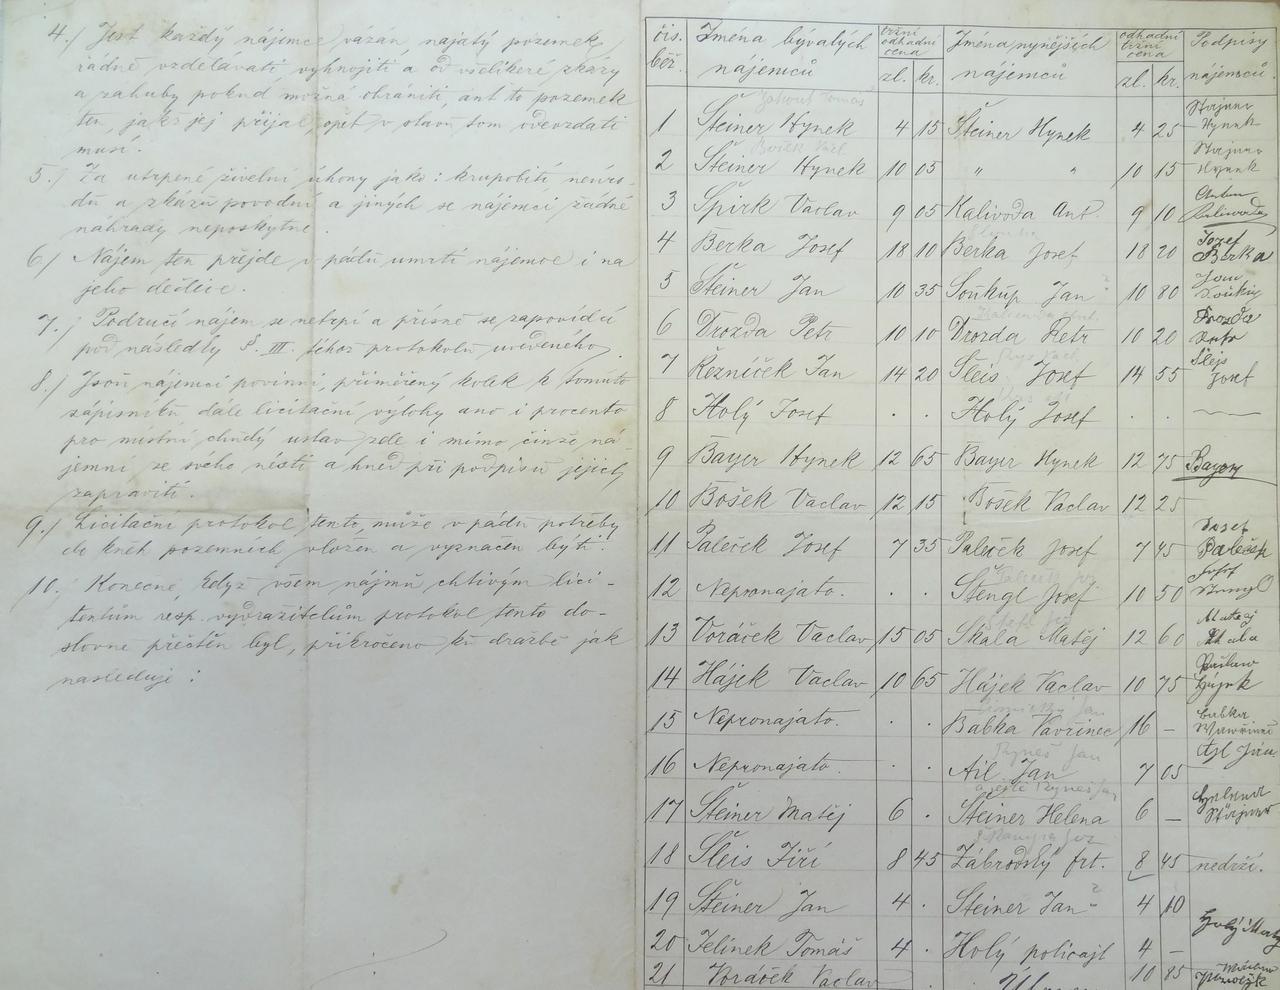 4.) Jest každý nájemce vázán, najatý pozemek
řádně vzdělávati, vyhnojiti a od všelikeré zkázy
a záhuby pokud možná chrániti, ant to pozemek
ten jak jej přijal opět v stavu tom odevzdati
musí.
5.) Za utrpené živelní úhony jako: krupobití, neúro-
du a zkázu povodní a jiných se nájemci žádné
náhrady neposkytne.
6.) Nájem ten přejde v pádu umrtí nájemce i na
jeho dědice.
7.) Područí nájem se netrpí a přísně se zapovídá
pod následky §. III. téhož protokolu uvedeného.
8.) Jsou nájemci povinni, přiměřený kolek k tomuto
zápisníku dále licitační výlohy ano i procento
pro místní chudý ustav zde i mimo činže ná-
jemní se svého nésti a hned při podpisu jejich
zapraviti.
9.) Licitační protokol tento, může v pádu potřeby
do kněh pozemních vložen a vyznačen býti.
10. Konečně, když všem nájmu chtivým lici-
tentům resp. vydražitelům protokol tento do-
slovně přečtěn byl, přikročeno ku dražbě jak
následuje:
čís. běž. Jména bývalých nájemců tržní odhadní cena zl. kr. Jména nynějších nájemců odhadní tržní cena zl. kr. Podpisy nájemců.
1 Šteiner Hynek 4 15 Šteiner Hynek 4 25 Stajner Hynek
2 Šteiner Hynek 10 05 " " 10 15 Stajner Hynek
3 Špirk Vaclav 9 05 Kalivoda Ant. 9 10 Kalivoda
4 Berka Josef 18 10 Berka Josef 18 20 Jozef Berka
5 Šteiner Jan 10 35 Soukup Jan ? 10 80 Jan
6 Drozda Petr 10 10 Drozda Petr 10 20 Drozda
7 Řezníček Jan 14 20 Šleis Josef 14 55 Šlejs Josef
8 Holý Josef . . Holý Josef . .
9 Bayer Hynek 12 65 Bayer Hynek 12 75 Bayer
10 Bošek Vaclav 12 15 Bošek Vaclav 12 25
11 Paleček Josef 7 35 Paleček Josef 7 45 Josef Paleček
12 Nepronajato. . . Štengl Josef 10 50 Josef
13 Voráček Vaclav 15 05 Skala Matěj 12 60
14 Hájek Vaclav 10 65 Hájek Vaclav 10 75 Hájek
15 Nepronajato. . . Babka Vavřinec 16 – Babka
16 Nepronajato. . . Ail Jan 7 05
17 Šteiner Matěj 6 . Šteiner Helena 6 –
18 Šleis Jiří 8 45 Zábrodský frt. 8 45 nedrží.
19 Šteiner Jan 4 . Šteiner Jan ? 4 10
20 Jelínek Tomáš 4 . Holý policajt 4 – Holý
21 Voráček Vaclav 10 85